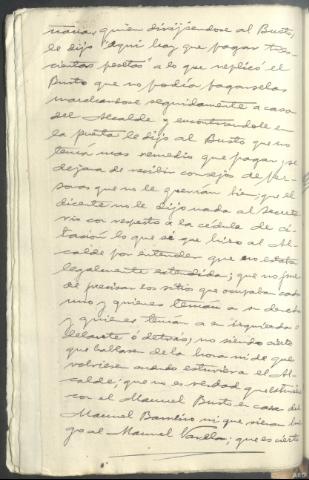 quien dirigiendose al Busto,
le dijo "aqui hay que pagar tres-
cientas pesetas" a lo que replicó el
Busto que no podia pagarselas
marchandose seguidamente a casa
del Alcalde y encontrandole en
la puerta le dijo al Busto que no
tenia mas remedio que pagar, se
dejara de recibir consejos de per-
sonas que no le querian bien; que el
dicente no le dijo nada al Secreta-
rio con respecto a la cédula de ci-
tación lo que si que hizo al Al-
calde por entender que no estaba
legalmente estendida; que no pue-
de precisar los sitios que ocupaba cada
uno y quienes tenian a su derecha
y quienes tenian a su izquierda o
delante ó detrás; no siendo cierto
que hablasen de la hora ni de que
volviese cuando estuviera el Al-
calde; que no es verdad que
con el Manuel Busto en casa del
Manuel ni que vieran
al Manuel Varela; que es cierto